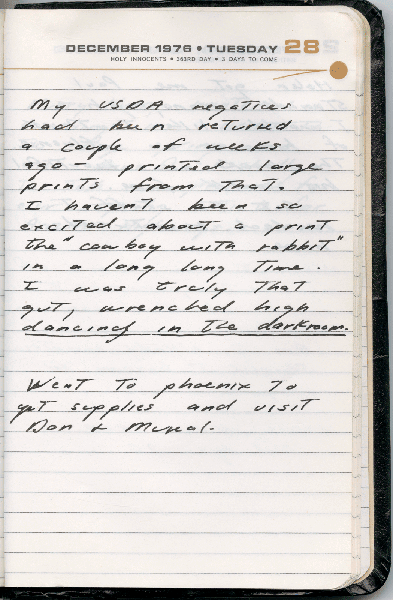 DECEMBER 1976 • TUESDAY 28
HOLY INNOCENTS • 363RD DAY • 3 DAYS TO COME
My USDA negatives
had been returned
a couple of weeks
ago - printed large
prints from that.
I haven't been so
excited about a print
the "cowboy with rabbit"
in a long long time.
I was truly that
gut, wrenched high
dancing in the darkroom.
Went to phoenix to
get supplies and visit
Don +